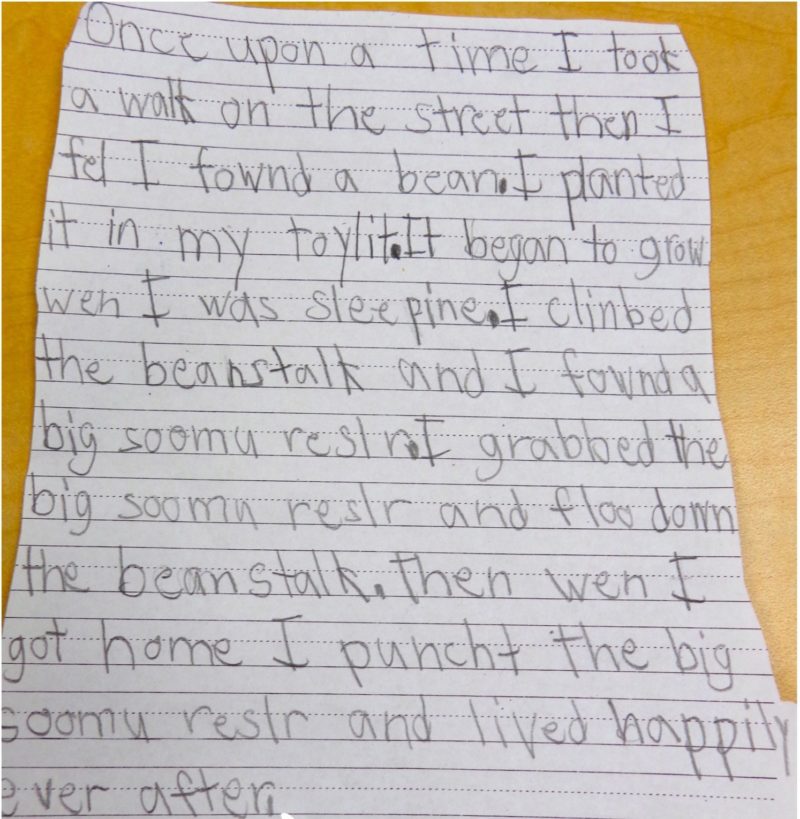 Once upon a time I took
a walk on the street then I
fel I fownd a bean.I planted
it in my toylit.It began to grow
wen I was sleepine.I climbed
the beanstalk and I fownd a
big soomu reslr.I grabbed the
big soomu reslr and floo down
the beanstalk. Then wen I
got home I puncht the big
soomu reslr and lived happily
ever after.